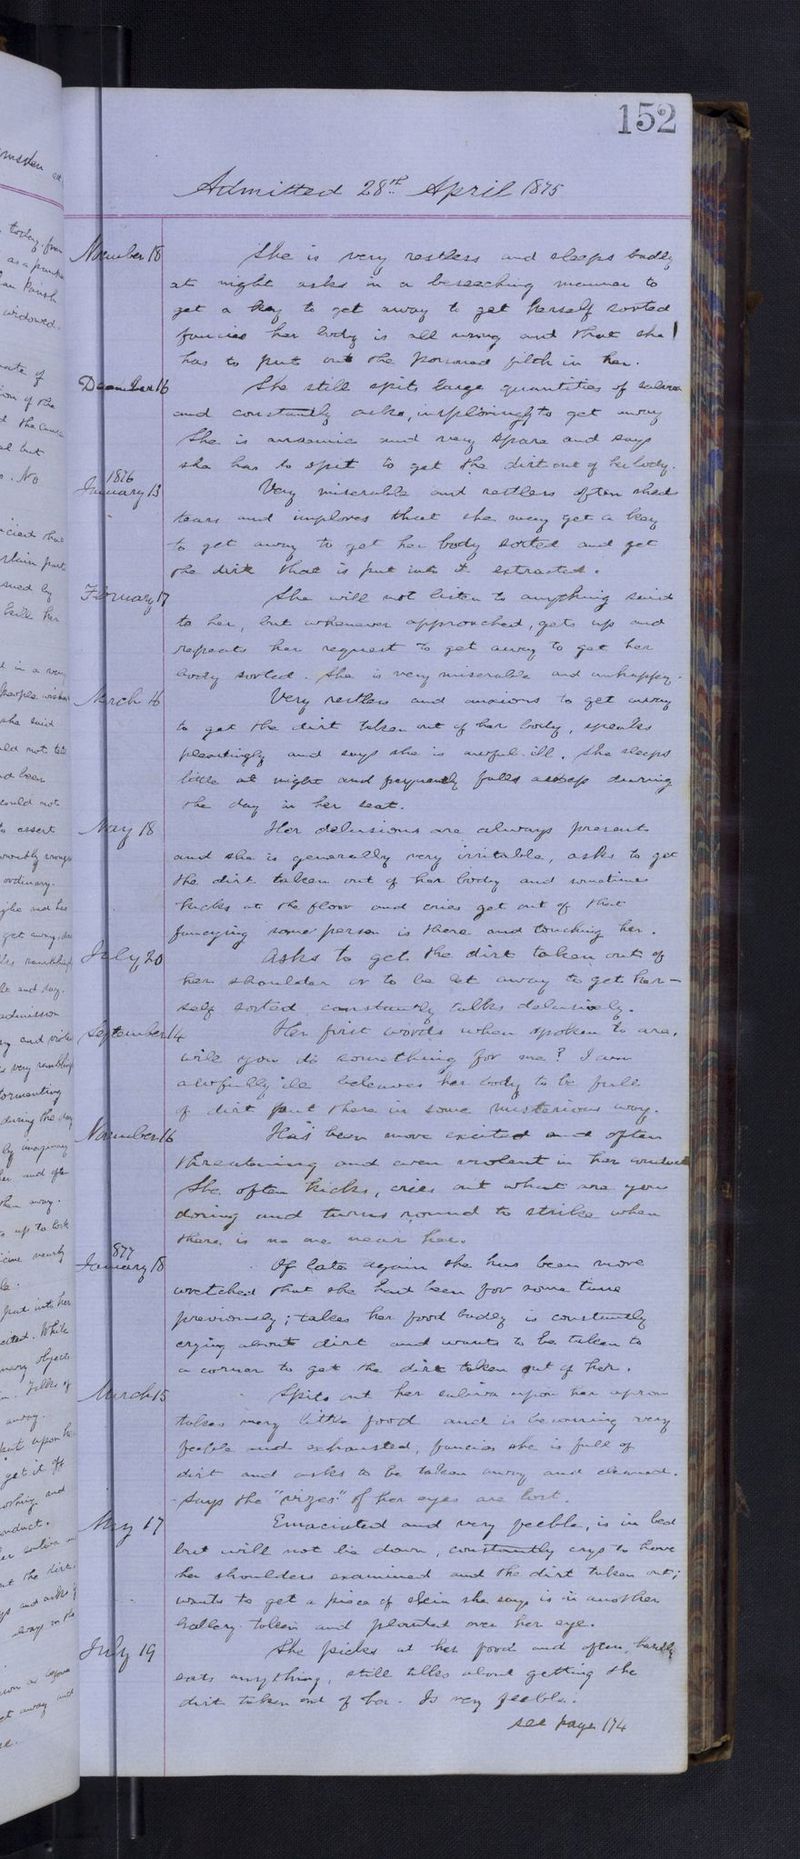 152
Admitted 28th April 1875
November 18 She is very restless and sleeps badly
at night asks in a beseeching manner to
get a key to get away to get herself sorted
fancies her body is all wrong and that she
has to put out the filth in her.
December 16 She still spits large quantities of saliva
and constantly asks, imploringly to get away
She is anaemic and very spare and says
she has to spit to get the dirt out of her body.
1876
January 13 Very miserable and restless often sheds
tears and implores that she may get a key
to get away to get her body sorted and get
the dirt that is put into it extracted.
February 17 She will not listen to anything said
to her, but whenever approached, gets up and
repeats her request to get away to get her
body sorted. She is very miserable and unhappy.
March 16 Very restless and anxious to get away
to get the dirt taken out of her body, speaks
pleadingly and says she is awful ill. She sleeps
little at night and frequently falls asleep during
the day in her seat.
May 18 Her delusions are always present
and she is generally very irritable, asks to get
the dirt taken out of her body and sometimes
kicks at the floor and cries get out of that
fancying some person is there and touching her.
July 20 Asks to get the dirt taken out of
her shoulder or to be let away to get her-
self sorted constantly talks delusively.
September 14 Her first words when spoken to are,
will you do something for me? I am
awfully ill believes her body to be full
of dirt put there in some misterious way.
November 16 Has been more excited and often
threatening and even violent in her conduct
She often kicks, cries out what are you
doing and turns round to strike when
there is no one near her.
877
January 18 Of late again she has been more
wretched that she had been for some time
previously; takes her food badly is constantly
crying about dirt and wants to be taken to
a corner to get the dirt taken out of her.
March 15 Spits out her saliva upon her apron
takes very little food and is becoming very
feeble and exhausted, fancies she is full of
dirt and asks to be taken away and cleaned.
Says the of her eyes are lost.
May 17 Emaciated and very feeble, is in bed
but will not lie down, constantly crys to have
her shoulders examined and the dirt taken out;
wants to get a piece of skin she says is in another
Gallery taken and planted over her eye.
July 19 She picks at her food and often hardly
eats anything, still talks about getting the
dirt taken out of her. Is very feeble.
see page 174